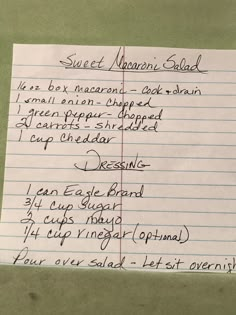 Sweet Macaroni Salad
16 oz box macaroni - cook + drain
1 small onion - chopped
1 green pepper - chopped
2 carrots - shredded
1 cup Cheddar
DRESSING
1 can Eagle Brand
3/4 cup sugar
2 cups mayo
1/4 cup vinegar (optional)
Pour over salad - Let sit overnight